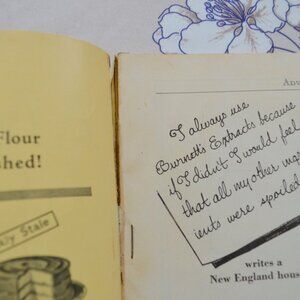 Flour
shed!
Stale
I always use
Burnett's Extracts because
if I didn't I would feel
that all my other
ients were spoiled
writes a
New England hous